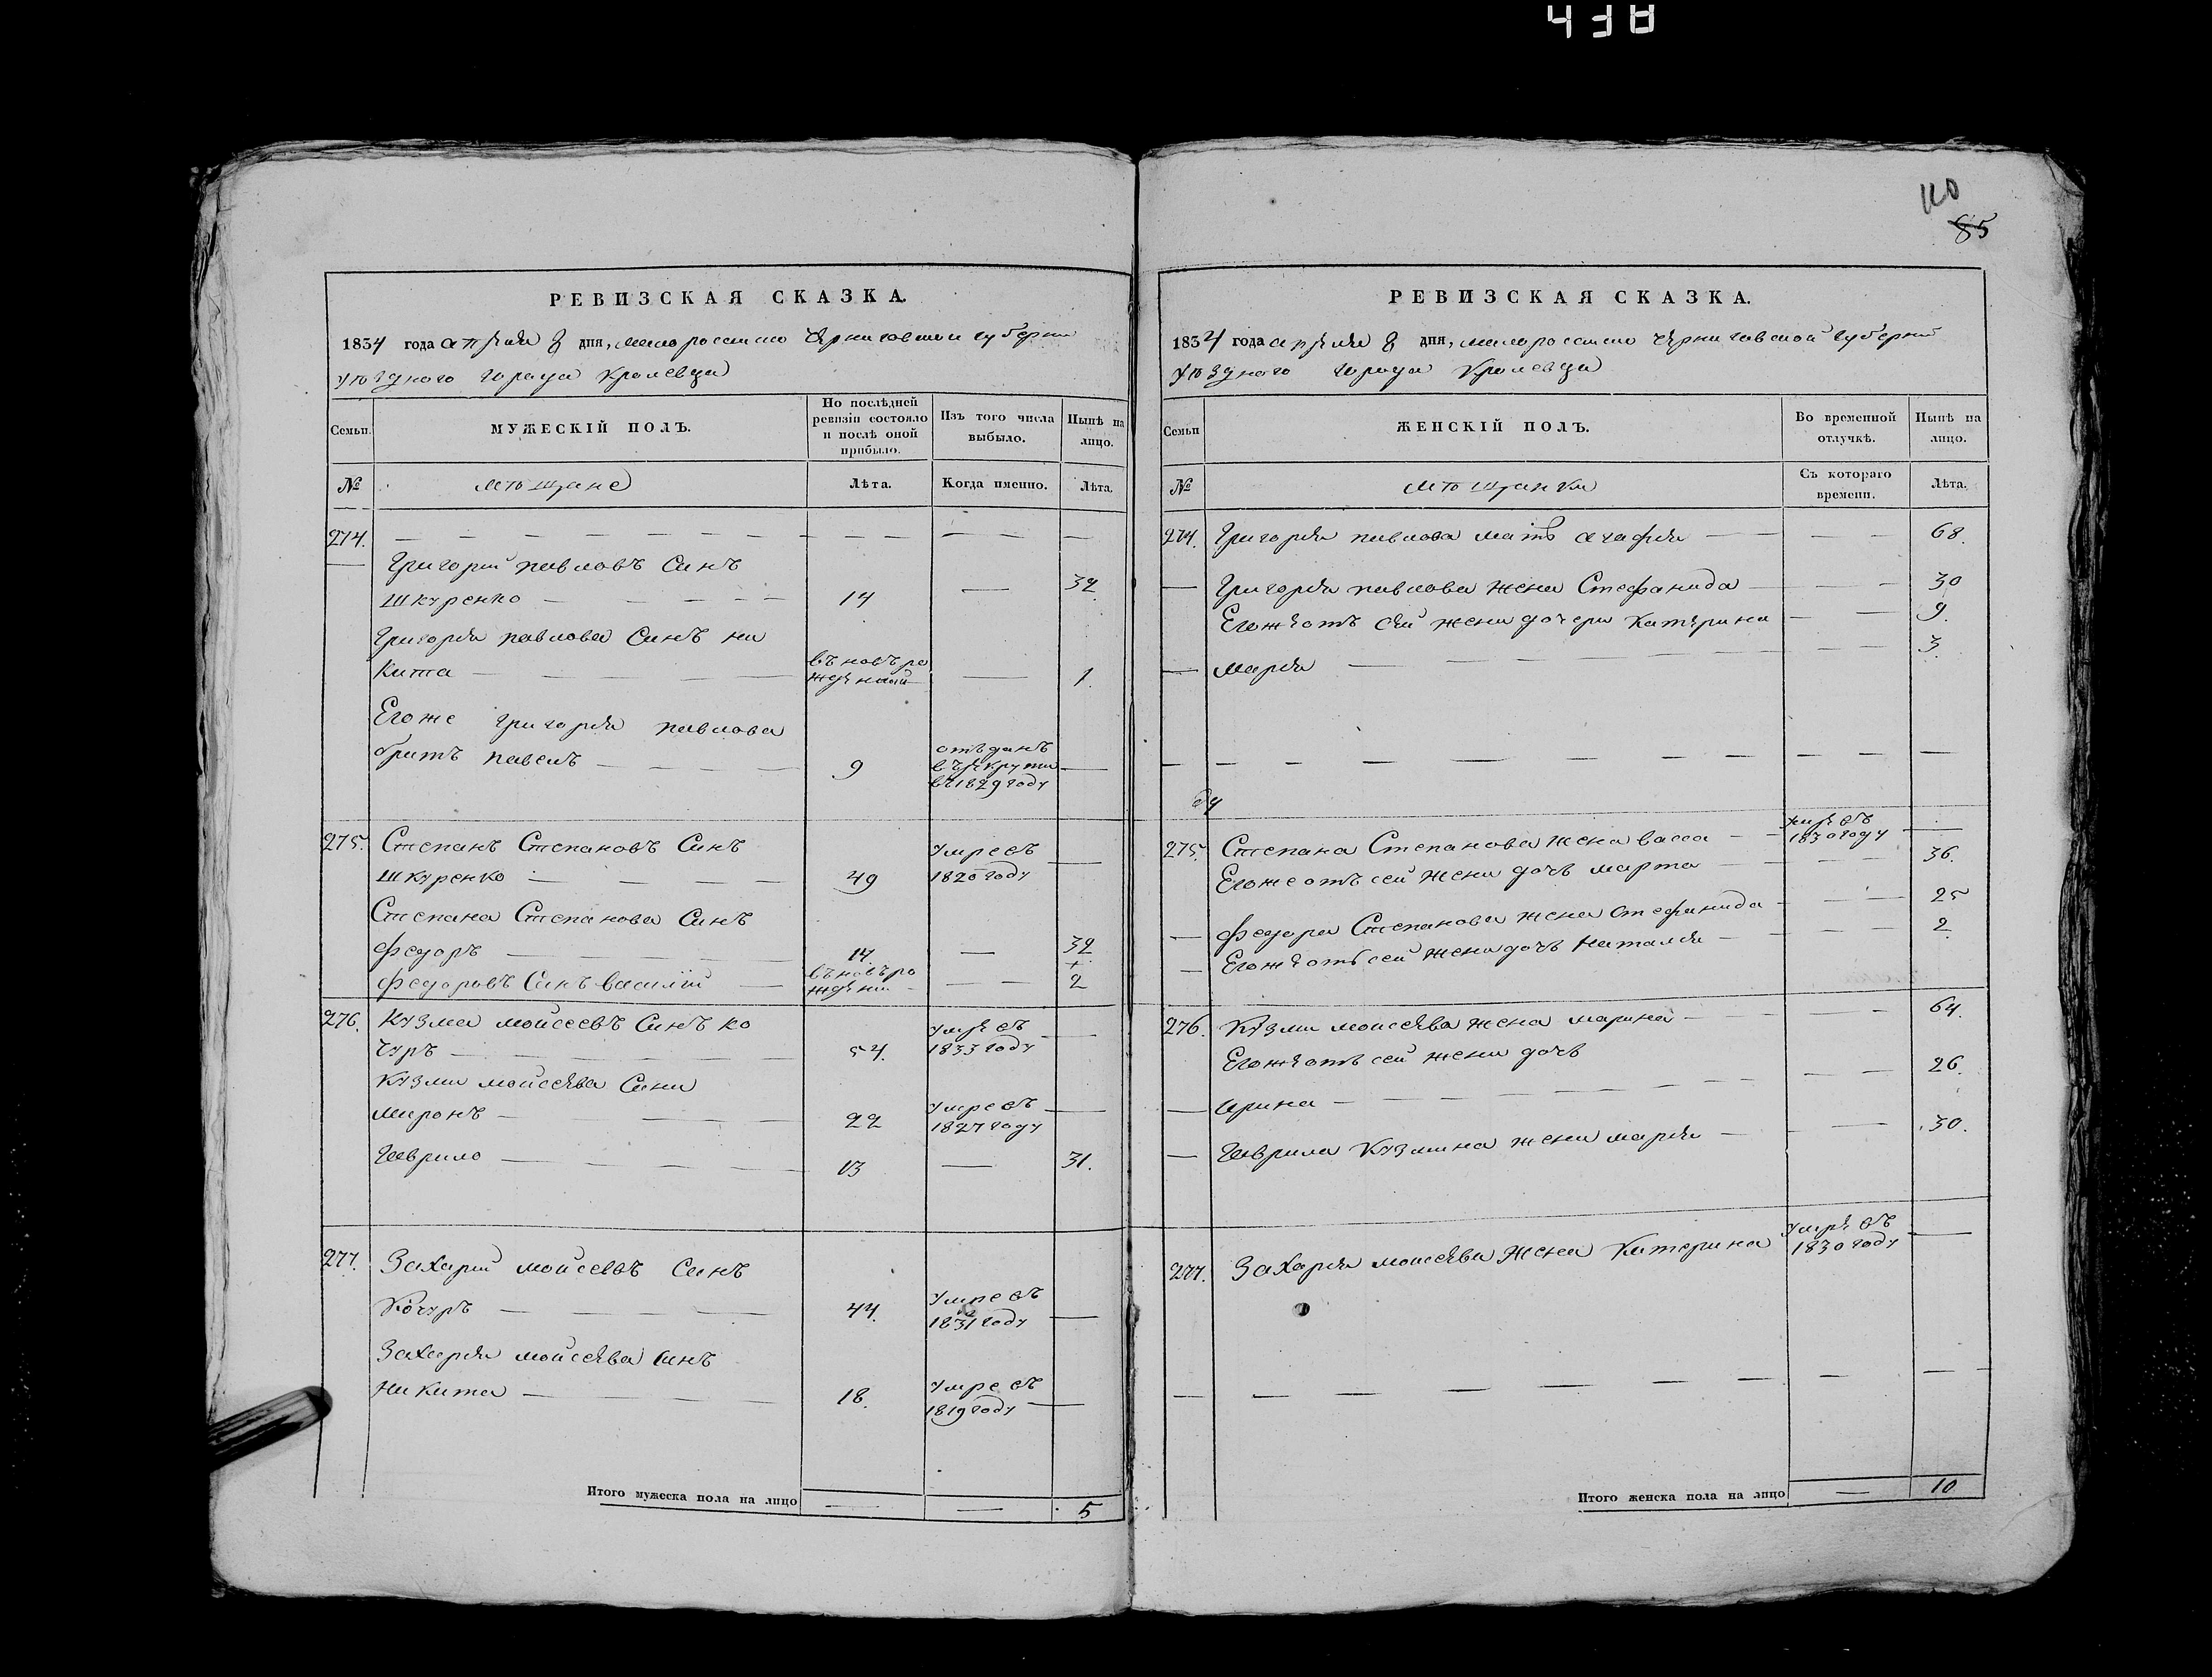 438
110
85
РЕВИЗСКАЯ СКАЗКА.
1834 года апреля 8 дня, малороссийско Черниговской губернии
уѣздного города Кролевца
Семьи.
МУЖЕСКІЙ ПОЛЪ.
По послѣдней ревизіи состояло и послѣ оной прибыло.
Изъ того числа выбыло.
Нынѣ на лицо.
№
мѣщане
Лѣта.
Когда именно.
Лѣта.
274. — — — — — —
Григорий павловъ Синъ
Шкуренко — 14 — 32
Григорія павлова Синъ ни
кита — въновъро
жденний — 1.
Егоже григорія павлова
братъ павелъ — 9 отъданъ
въ рекрути —
въ 1829 году
275. Степанъ Степановъ Синъ умре въ —
Шкуренко — 49 1820 году
Степана Степанова Синъ
федоръ — 14. — 32
федоровъ Синъ василій — въновъро
ждени — 2
276. Кузма мойсеевъ Синъ ко умре въ —
чуръ — 54. 1833 году
Кузми мойсеева Сини
миронъ — 22 умре въ —
1827 году
Гаврило — 13 — 31.
277. Захарий мойсеевъ Синъ
Кочуръ — 44. умре въ
1831 году —
Захарія мойсеева Синъ
никита — 18. умре въ
1819 году —
Итого мужеска пола на лицо — — 5
РЕВИЗСКАЯ СКАЗКА.
1834 года апреля 8 дня, малороссийско Черниговской губерний
уѣздного города Кролевца
Семьи
ЖЕНСКІЙ ПОЛЪ.
Во временной отлучкѣ.
Нынѣ на лицо.
№
мѣщанки
Съ котораго времени.
Лѣта.
274. Григорія павлова мать агафія — 68.
— Григорія павлова жена Стефанида — 30
Егожеотъ сей жени дочери катерина — 9.
— марія — 3.
— — — — — — —
275. Степана Степанова жена васса — умре въ
1830 году —
Егожеотъ сей жени дочъ марта — 36.
— федора Степанова жена стефанида — 25
— Егожеотъ сей жени дочъ наталія — 2.
276. Кузми моисеева жена марина — 64.
Егожеотъ сей жени дочъ
— арина — 26.
— Гаврила Кузмина жена марія — 30.
277. Захарія моисеева жена Катерина умре въ
1830 году —
— — — — — — —
Итого женска пола на лицо — 10